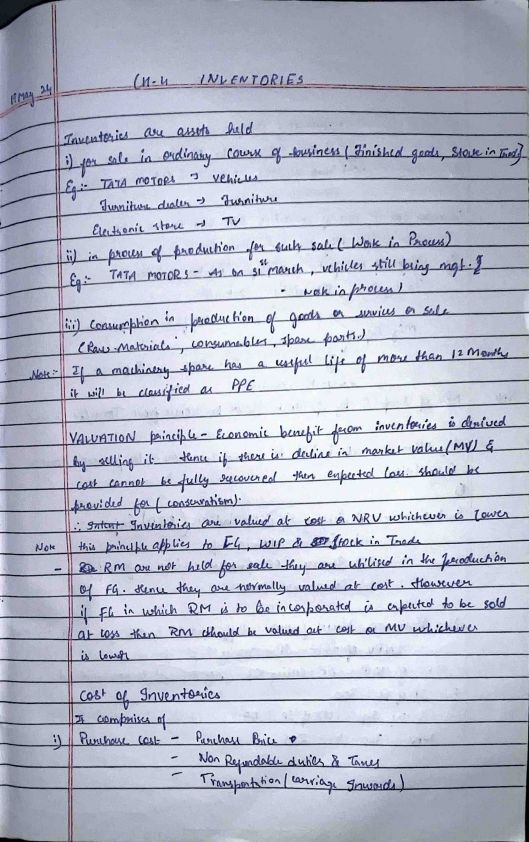 17 May 24
CH-4 INVENTORIES
Inventories are assets held
i) for sale in ordinary course of business (Finished goods, Stock in Trade)
Eg:- TATA MOTORS → vehicles
Furniture dealer → Furniture
Electronic store → TV
ii) in process of production for such sale (Work in Process)
Eg:- TATA MOTORS - As on 31st March, vehicles still being mgt.
Wok in process)
iii) Consumption in production of goods or services or sale
(Raw Materials, consumables, spare parts.)
Note:- If a machinery spare has a useful life of more than 12 Months
it will be classified as PPE
VALUATION principle - Economic benefit from inventories is derived
by selling it. Hence if there is decline in market value (MV) &
cost cannot be fully recovered then expected loss should be
provided for (conservatism).
∴ Inventories are valued at cost or NRV whichever is lower
Note this principle applies to FG, WIP & Stock in Trade
- RM are not held for sale they are utilised in the production
of FG. Hence they are normally valued at cost. However
if FG in which RM is to be incorporated is expected to be sold
at loss then RM should be valued at cost or MV whichever
is lower
Cost of Inventories
It comprises of
i) Purchase cost - Purchase Price
- Non Refundable duties & Taxes
- Transportation (carriage Inwards)